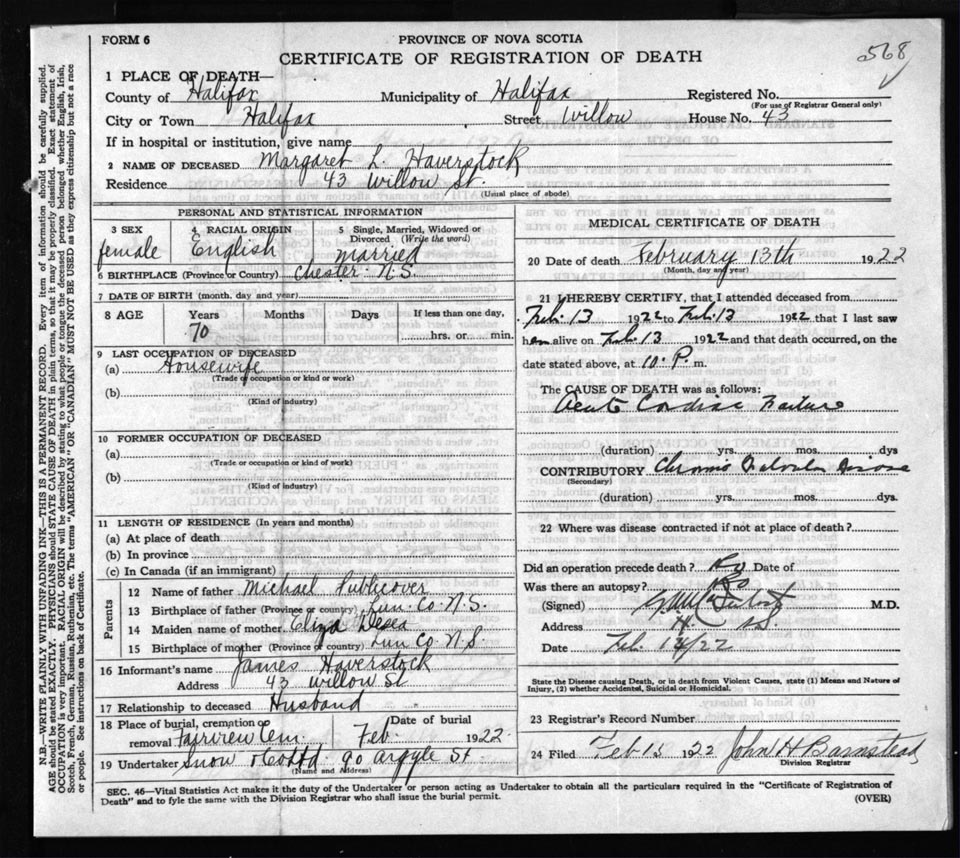 FORM 6
PROVINCE OF NOVA SCOTIA
568
CERTIFICATE OF REGISTRATION OF DEATH
1 PLACE OF DEATH—
County of Halifax Municipality of Halifax Registered No.
(For use of Registrar General only)
City or Town Halifax Street Willow House No. 43
If in hospital or institution, give name
2 NAME OF DECEASED Margaret L. Haverstock
Residence 43 Willow St.
(Usual place of abode)
PERSONAL AND STATISTICAL INFORMATION
3 SEX 4 RACIAL ORIGIN 5 Single, Married, Widowed or
Divorced (Write the word)
female English Married
6 BIRTHPLACE (Province or Country) Chester N.S.
7 DATE OF BIRTH (month, day and year)
8 AGE Years Months Days If less than one day,
70 hrs. or min.
9 LAST OCCUPATION OF DECEASED
(a) Housewife
(Trade or occupation or kind or work)
(b)
(Kind of industry)
10 FORMER OCCUPATION OF DECEASED
(a)
(Trade or occupation or kind of work)
(b)
(Kind of industry)
11 LENGTH OF RESIDENCE (In years and months)
(a) At place of death
(b) In province
(c) In Canada (if an immigrant)
Parents
12 Name of father Michael Publicover
13 Birthplace of father (Province or country) Lun. Co. N.S.
14 Maiden name of mother Eliza
15 Birthplace of mother (Province or country) Lun Co. N.S
16 Informant's name James Haverstock
Address 43 Willow St
17 Relationship to deceased Husband
18 Place of burial, cremation or Date of burial
removal Fairview Cem. Feb. 1922.
19 Undertaker Snow & Co Ltd. 90 Argyle St.
(Name and Address)
MEDICAL CERTIFICATE OF DEATH
20 Date of death February 13th 1922
(Month, day and year)
21 I HEREBY CERTIFY, that I attended deceased from
Feb. 13 1922 to Feb. 13 1922 that I last saw
her alive on Feb. 13 1922 and that death occurred, on the
date stated above, at 10 P. m.
The CAUSE OF DEATH was as follows:
Acute Cardiac Failure
(duration) yrs. mos. dys
CONTRIBUTORY Chronic Valvular Disease
(Secondary)
(duration) yrs. mos. dys.
22 Where was disease contracted if not at place of death?
Did an operation precede death? No Date of
Was there an autopsy? No
(Signed) M.D.
Address
Date Feb. 14/22
State the Disease causing Death, or in death from Violent Causes, state (1) Means and Nature of
Injury, (2) whether Accidental, Suicidal or Homicidal.
23 Registrar's Record Number
24 Filed Feb 15 1922 John H Barnstead
Division Registrar
SEC. 46—Vital Statistics Act makes it the duty of the Undertaker or person acting as Undertaker to obtain all the particulars required in the "Certificate of Registration of
Death" and to fyle the same with the Division Registrar who shall issue the burial permit.
(OVER)
N.B.—WRITE PLAINLY WITH UNFADING INK—THIS IS A PERMANENT RECORD. Every item of information should be carefully supplied.
AGE should be stated EXACTLY. PHYSICIANS should STATE CAUSE OF DEATH in plain terms, so that it may be properly classified. Exact statement of
OCCUPATION is very important. RACIAL ORIGIN will be described by stating to what people or tongue the deceased person belonged, whether English, Irish,
Scotch, French, German, Russian, Ruthenian, etc. The terms "AMERICAN" or "CANADIAN" MUST NOT BE USED as they express citizenship but not a race
or people. See instructions on back of Certificate.